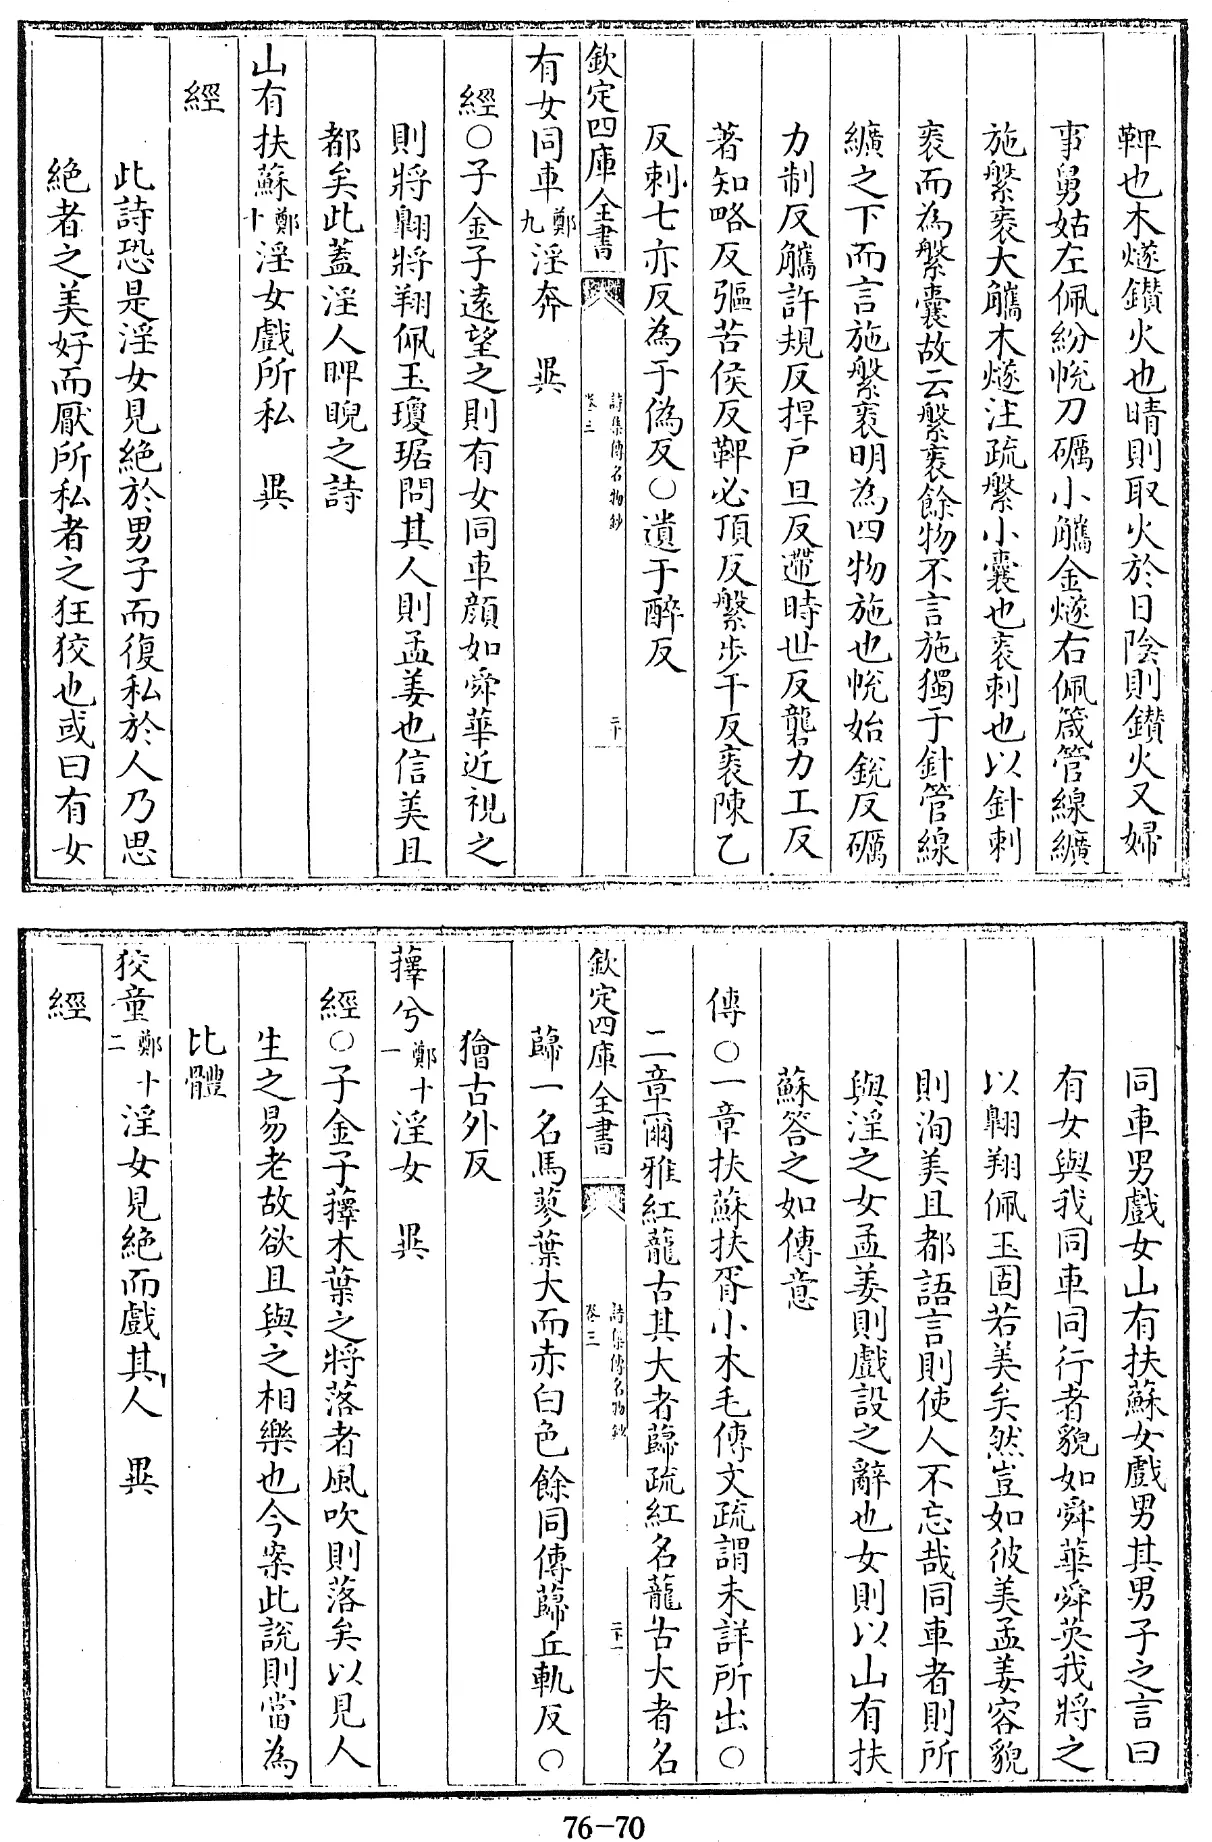 鞞也木燧鑚火也晴則取火於日陰則鑚火又婦
事舅姑左佩紛帨刀礪小觿金燧右佩箴管線纊
施縏袠大觿木燧注疏縏小囊也袠刺也以針刺
袠而為縏囊故云縏袠餘物不言施獨于針管線
纊之下而言施縏袠明為四物施也帨始銳反礪
力制反觿許規反捍戶旦反遰時世反礲力工反
著知略反彄苦侯反鞞必頂反縏步干反袠陳乙
反刺七亦反為于偽反○遺于醉反
欽定四庫全書 詩集傳名物鈔 卷三 二十
有女同車鄭九淫奔 㒸
經○子金子遠望之則有女同車顔如舜華近視之
則將翺將翔佩玉瓊琚問其人則孟姜也信美且
都矣此蓋淫人睥睨之詩
山有扶蘇鄭十淫女戲所私 㒸
經
此詩恐是淫女見絶於男子而復私於人乃思
絶者之美好而厭所私者之狂狡也或曰有女
同車男戲女山有扶蘇女戲男其男子之言曰
有女與我同車同行者貌如舜華舜英我將之
以翺翔佩玉固若美矣然豈如彼美孟姜容貌
則洵美且都語言則使人不忘哉同車者則所
與淫之女孟姜則戲設之辭也女則以山有扶
蘇答之如傳意
傳○一章扶蘇扶胥小木毛傳文疏謂未詳所出○
二章爾雅紅蘢古其大者蘬疏紅名蘢古大者名
欽定四庫全書 詩集傳名物鈔 卷三 二十一
蘬一名馬蓼葉大而赤白色餘同傳蘬丘軌反○
獪古外反
蘀兮鄭十一淫女 㒸
經○子金子蘀木葉之將落者風吹則落矣以見人
生之易老故欲且與之相樂也今案此說則當為
比體
狡童鄭十二淫女見絶而戲其人 㒸
經
76-70